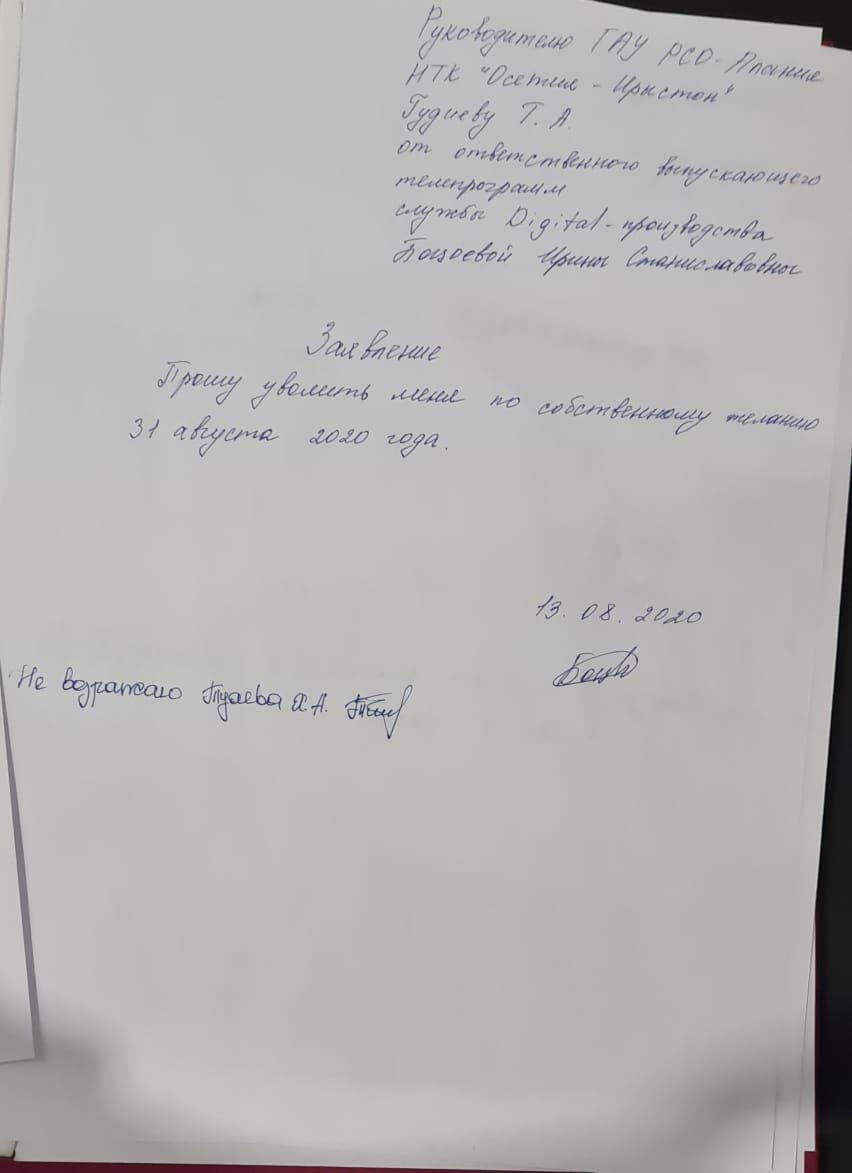 Руководителю ГАУ РСО-Алания
НТК "Осетия - Ирыстон"
Гудиеву Т. А.
от ответственного выпускающего
телепрограмм
службы Digital-производства
Боцоевой Ирины Станиславовны
Заявление
Прошу уволить меня по собственному желанию
31 августа 2020 года.
13. 08. 2020
Не возражаю Туаева Х.А.